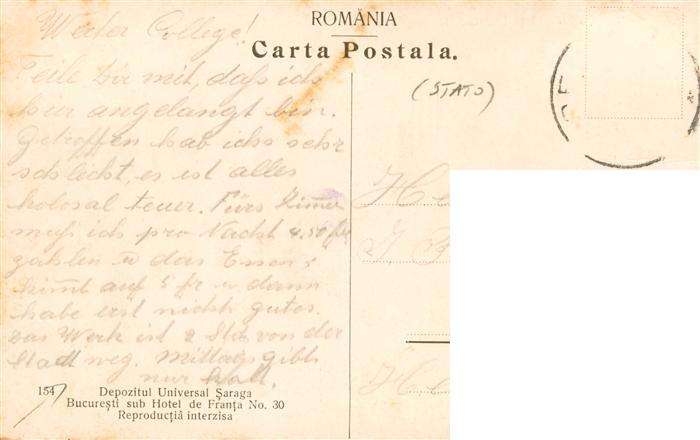 ROMÂNIA
Carta Postala.
(STATO)
Werter College!
Teile dir mit, daß ich
hier angelangt bin.
Getroffen hab ichs sehr
schlecht, es ist alles
kolosal teuer. Fürs Zimmer
muß ich pro Nacht 4.50 fr
zahlen u das Essen
kimmt auf 5 fr u dann
habe erst nichts gutes.
Das Werk ist 2 Std von der
Stadt weg. Mittags gibts
nur kalt.
154
Depozitul Universal Șaraga
Bucureștі sub Hotel de Franța No. 30
Reproducția interzisa